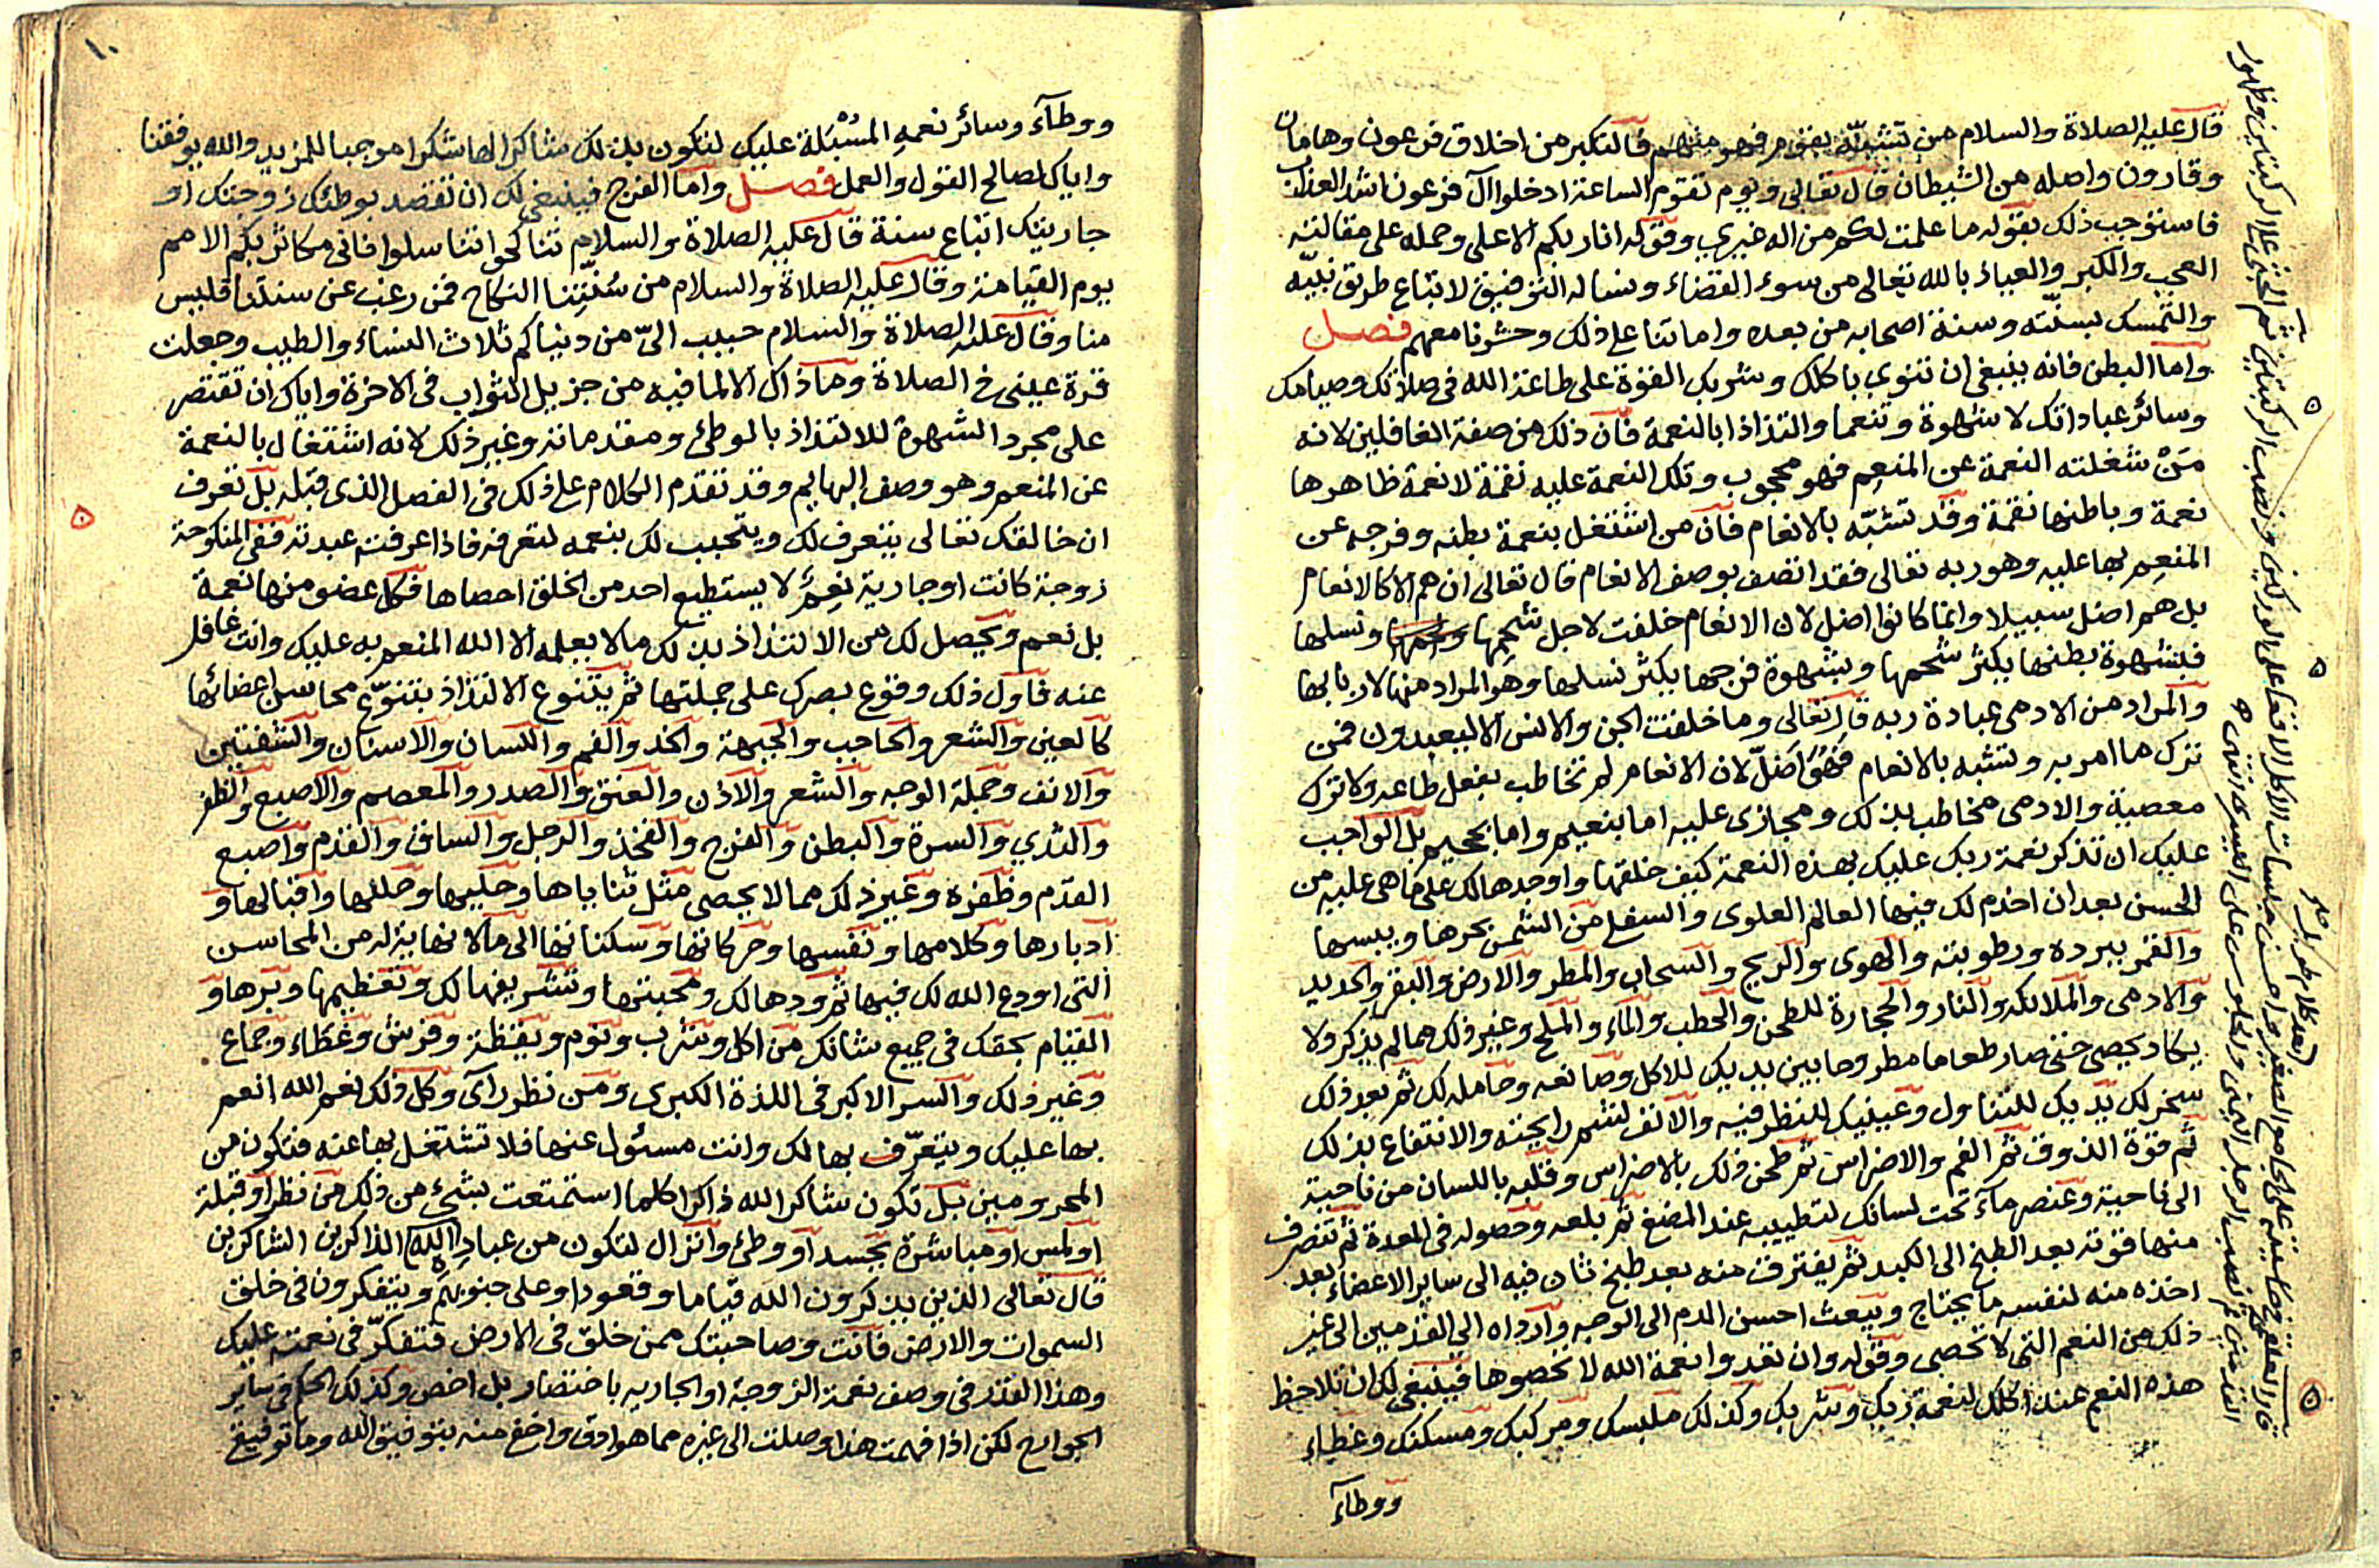 قال عليه الصلاة والسلام من تشبّه بقوم فهو منهم فالتكبر من اخلاق فرعون وهامان
وقارون واصله من الشيطان قال تعالى ويوم تقوم الساعة ادخلوا آل فرعون اشد العذاب
فاستوجب ذلك بقوله ما علمت لكم من اله غيري وقوله انا ربكم الاعلى وحمله على مقالته
العجب والكبر والعياذ بالله تعالى من سوء القضاء ونساله التوفيق لاتباع طريق نبيّه
والتمسك بسنّته وسنة اصحابه من بعده واماتنا على ذلك وحشرنا معهم فصل
واما البطن فانه ينبغي ان تنوي باكلك وشربك القوة على طاعة الله فى صلاتك وصيامك
وسائر عباداتك لا شهوة وتنعما والتذاذا بالنعمة فان ذلك من صفة الغافلين لانه
مَنْ شغلته النعمة عن المنعم فهو محجوب وتلك النعمة عليه نقمة لا نعمة ظاهرها
نعمة وباطنها نقمة وقد تشبّه بالانعام فان من اشتغل بنعمة بطنه وفرجه عن
المنعم بها عليه وهو ربه تعالى فقد اتصف بوصف الانعام قال تعالى ان هم الا كالانعام
بل هم اضل سبيلا وانما كانوا اضل لان الانعام خلقت لاجل شحمها ونسلها
فلشهوة بطنها يكثر شحمها وبشهوة فرجها يكثر نسلها وهو المراد منها لاربابها
والمراد من الادمى عبادة ربه قال تعالى وما خلقت الجن والانس الا ليعبدون فمن
ترك ما امر به وتشبه بالانعام فَهُوَ اَضَلّ لان الانعام لم تخاطب بفعل طاعه ولا ترك
معصية والادمى مخاطب بذلك ومجازى عليه اما بنعيم واما بجحيم بل الواجب
عليك ان تذكر نعمة ربك عليك بهذه النعمة كيف خلقها واوجدها لك على ما هى عليه من
الحسن بعد ان اخدم لك فيها العالم العلوى والسفلى من الشمس بحرها ويبسها
والقمر ببرده ورطوبته والهوى والريح والسحاب والمطر والارض والبقر والحديد
والادمى والملائكه والنار والحجارة للطحن والحطب والماء والملح وغير ذلك مما لم يذكر ولا
يكاد يحصى حتى صار طعاما مطروحا بين يديك للاكل وصانعه وحامله لك ثم بعد ذلك
سخر لك يديك للتناول وعينيك للنظر فيه والانف لشم رايحته والانتفاع بذلك
ثم قوة الذوق ثم الفم والاضراس ثم طحن ذلك بالاضراس وقلبه باللسان من ناحية
الى ناحية وعنصر مآء تحت لسانك لتطييبه عند المضغ ثم بلعه وحصوله فى المعدة ثم تتصرف
منها قوته بعد الطبخ الى الكبد ثم يفترق منه بعد طبخ ثان فيه الى ساير الاعضاء بعد
اخذه منه لنفسه ما يحتاج ويبعث احسن الدم الى الوجه وارداه الى القدمين الى غير
ذلك من النعم التى لا تحصى وقوله وان تعدوا نعمة الله لا تحصوها فينبغى لك ان تلاحظ
هذه النعم عند اكلك لنعمة ربك وشربك وكذلك ملبسك ومركبك ومسكنك وغطاء
ووطآء
قال العلقمى فى حاشيته على الجامع الصغير واحسن جلسات الاكل الاقعا على الوركين ونصب الركبتين ثم الجثى على الركبتين وظهور
القدمين ثم نصب الرجل اليمنى والجلوس على اليسرى انتهى
١٠
ووطآء وسائر نعمه المُسْبَلة عليك لتكون بذلك شاكرا لها شكرا موجبا للمزيد والله يوفقنا
واياك لصالح القول والعمل فصل واما الفرج فينبغى لك ان تقصد بوطئك زوجتك او
جاريتك اتباع سنة قال عليه الصلاة والسلام تناكحوا تناسلوا فانى مكاثر بكم الامم
يوم القيامة وقال عليه الصلاة والسلام من سُنّتِنا النكاح فمن رغب عن سنتنا فليس
منا وقال عليه الصلاة والسلام حبب الىّ من دنياكم ثلاث النساء والطيب وجعلت
قرة عينى فى الصلاة وما ذاك الا لما فيه من جزيل الثواب فى الاخرة واياك ان تقتصر
على مجرد الشهوة للالتذاذ بالوطئ ومقدماته وغير ذلك لانه اشتغال بالنعمة
عن المنعم وهو وصف البهايم وقد تقدم الكلام على ذلك فى الفصل الذى قبله بل تعرف
ان خالقك تعالى يتعرف لك ويتحبب لك بنعمه لتعرفه فاذا عرفته عبدته ففى المنكوحة
زوجة كانت او جارية نِعَمٌ لا يستطيع احد من الخلق احصاها فكل عضو منها نعمة
بل نعم ويحصل لك من الالتذاذ بذلك ما لا يعلمه الا الله المنعم به عليك وانت غافل
عنه فاول ذلك وقوع بصرك على جملتها ثم يتنوع الالتذاذ بتنوّع محاسن اعضائها
كالعين والشعر والحاجب والجبهة والخد والفم واللسان والاسنان والشفتين
والانف وجملة الوجه والشعر والاذن والعنق والصدر والمعصم والاصبع والظفر
والثدي والسرة والبطن والفرج والفخذ والرجل والساق والقدم واصبع
القدم وظفره وغير ذلك مما لا يحصى مثل ثناياها وحليها وحللها واقبالها و
ادبارها وكلامها ونفسها وحركاتها وسكناتها الى ما لا نهاية له من المحاسن
التى اودع الله لك فيها ثم ودها لك ومحبتها وتشريفها لك وتعظيمها وبرها و
القيام بحقك فى جميع شانك من اكل وشرب ونوم ويقظة وفرش وغطاء وجماع
وغير ذلك والسر الاكبر فى اللذة الكبرى ومن نظر رآى وكل ذلك نعم الله انعم
بها عليك ويتعرّف بها لك وانت مسئول عنها فلا تشتغل بها عنه فتكون من
المحرومين بل تكون شاكرا لله ذاكرا كلما استمتعت بشئ من ذلك من نظر او قبلة
او لمس او مباشرة بجسد او وطئ وانزال لتكون من عباد الله الذاكرين الشاكرين
قال تعالى الذين يذكرون الله قياما وقعودا وعلى جنوبهم ويتفكرون فى خلق
السموات والارض فانت وصاحبتك ممن خلق فى الارض فتفكّر فى نعمته عليك
وهذا القدر فى وصف نعمة الزوجة او الجاريه باختصار بل اخص وكذلك الحكم فى سائر
الجوارح لكن اذا فهمت هذا وصلت الى غيره مما هو ادق واخفى منه بتوفيق الله وما توفيقى